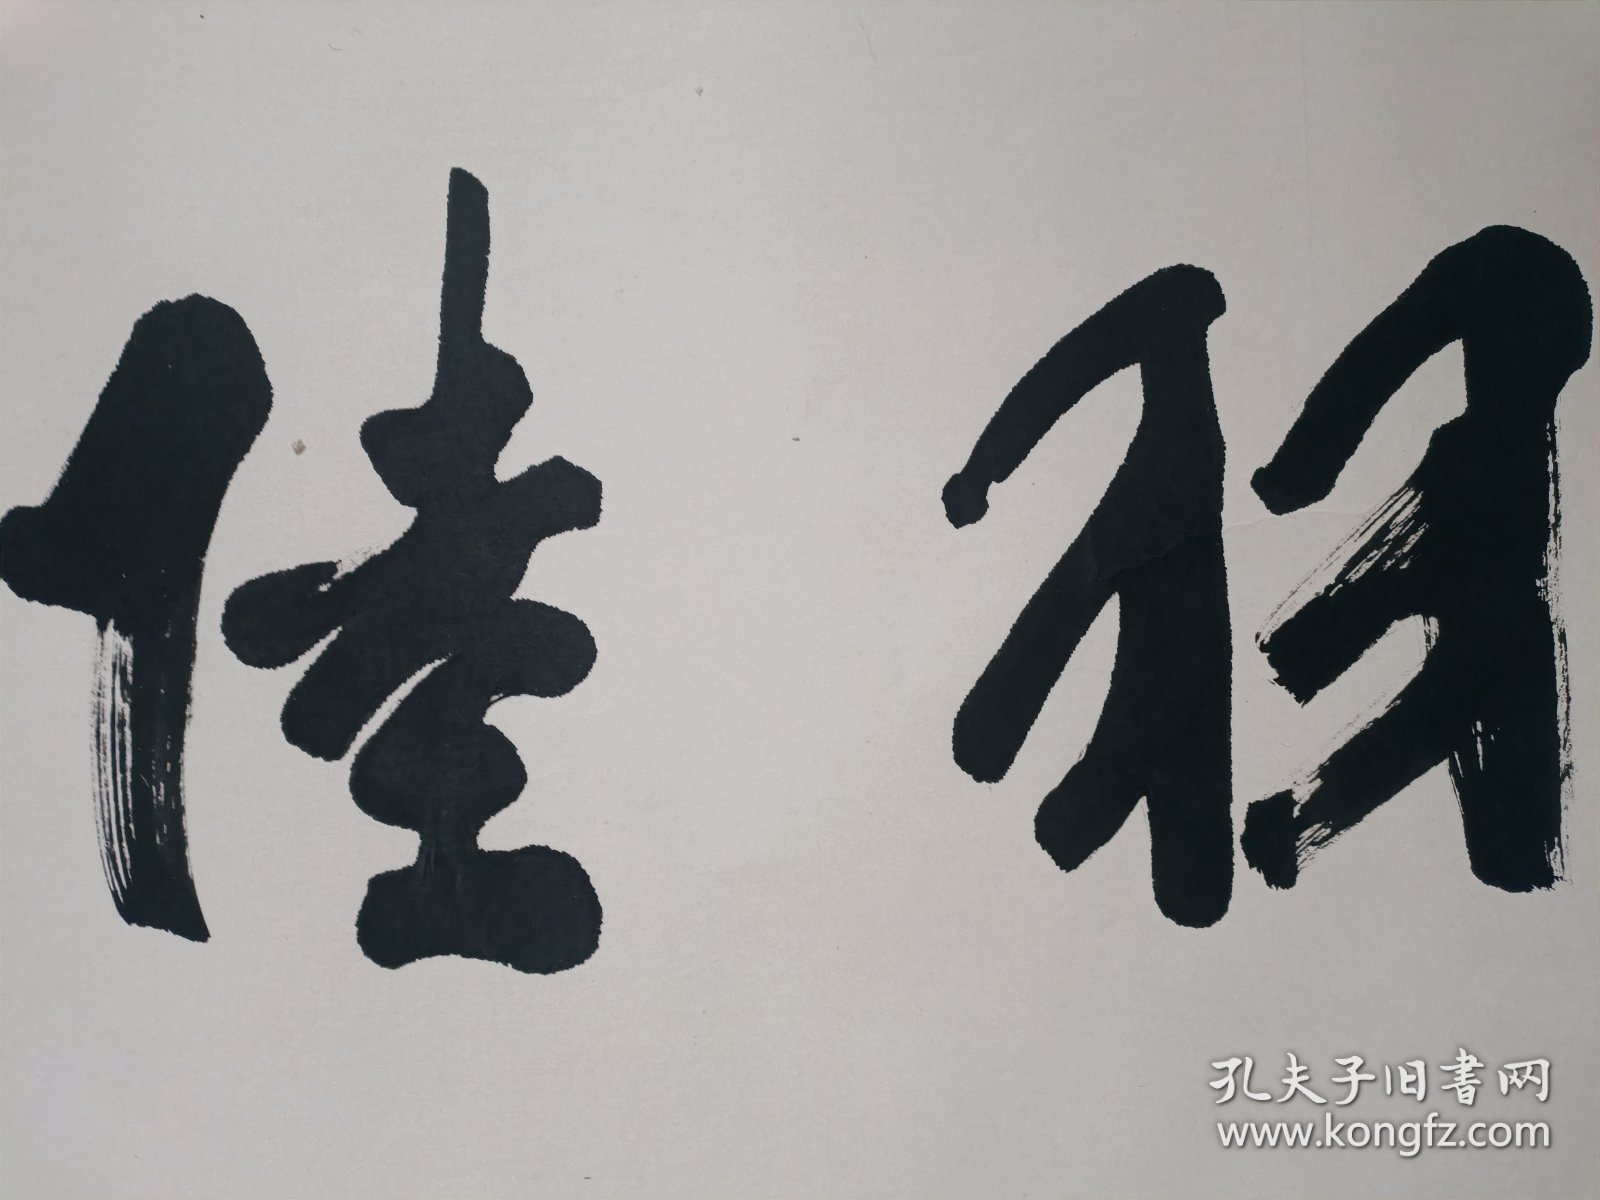 羽佳
孔夫子旧書网
www.kongfz.com